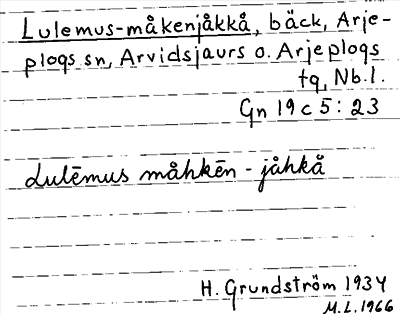 Lulemus-måkenjåkkå, bäck, Arje-
plogs sn, Arvidsjaurs o. Arjeplogs
tq, Nb.l.
Gn 19 c 5 : 23
Lulēmus måhkēn - jåhkå
H. Grundström 1934
M.L. 1966